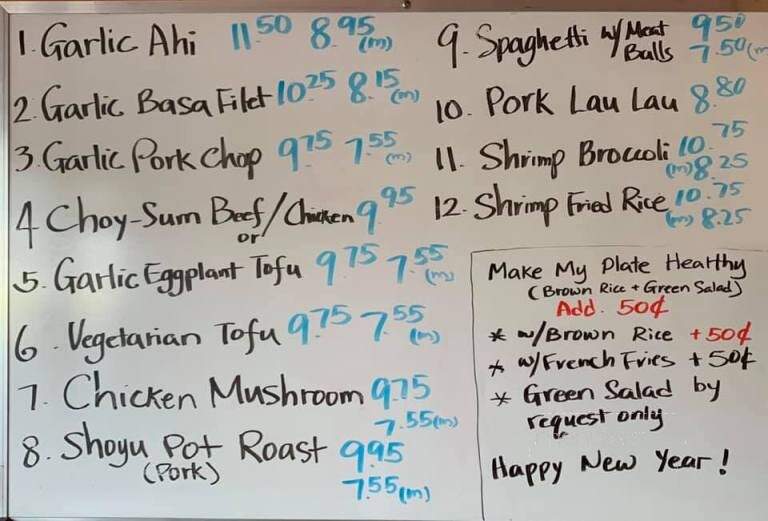 1. Garlic Ahi 11.50 8.95 (m)
2. Garlic Basa Filet 10.25 8.15 (m)
3. Garlic Pork Chop 9.75 7.55 (m)
4 Choy-Sum Beef/Chicken 9.95
or
5. Garlic Eggplant Tofu 9.75 7.55 (m)
6. Vegetarian Tofu 9.75 7.55 (m)
7. Chicken Mushroom 9.75
7.55 (m)
8. Shoyu Pot Roast 9.95
(Pork)
7.55 (m)
9. Spaghetti w/Meat Balls 9.50
7.50 (m
10. Pork Lau Lau 8.80
11. Shrimp Broccoli 10.75
(m) 8.25
12. Shrimp Fried Rice 10.75
(m) 8.25
Make My Plate Healthy
(Brown Rice + Green Salad)
Add. 50¢
* w/Brown Rice +50¢
* w/French Fries +50¢
* Green Salad by
request only
Happy New Year!